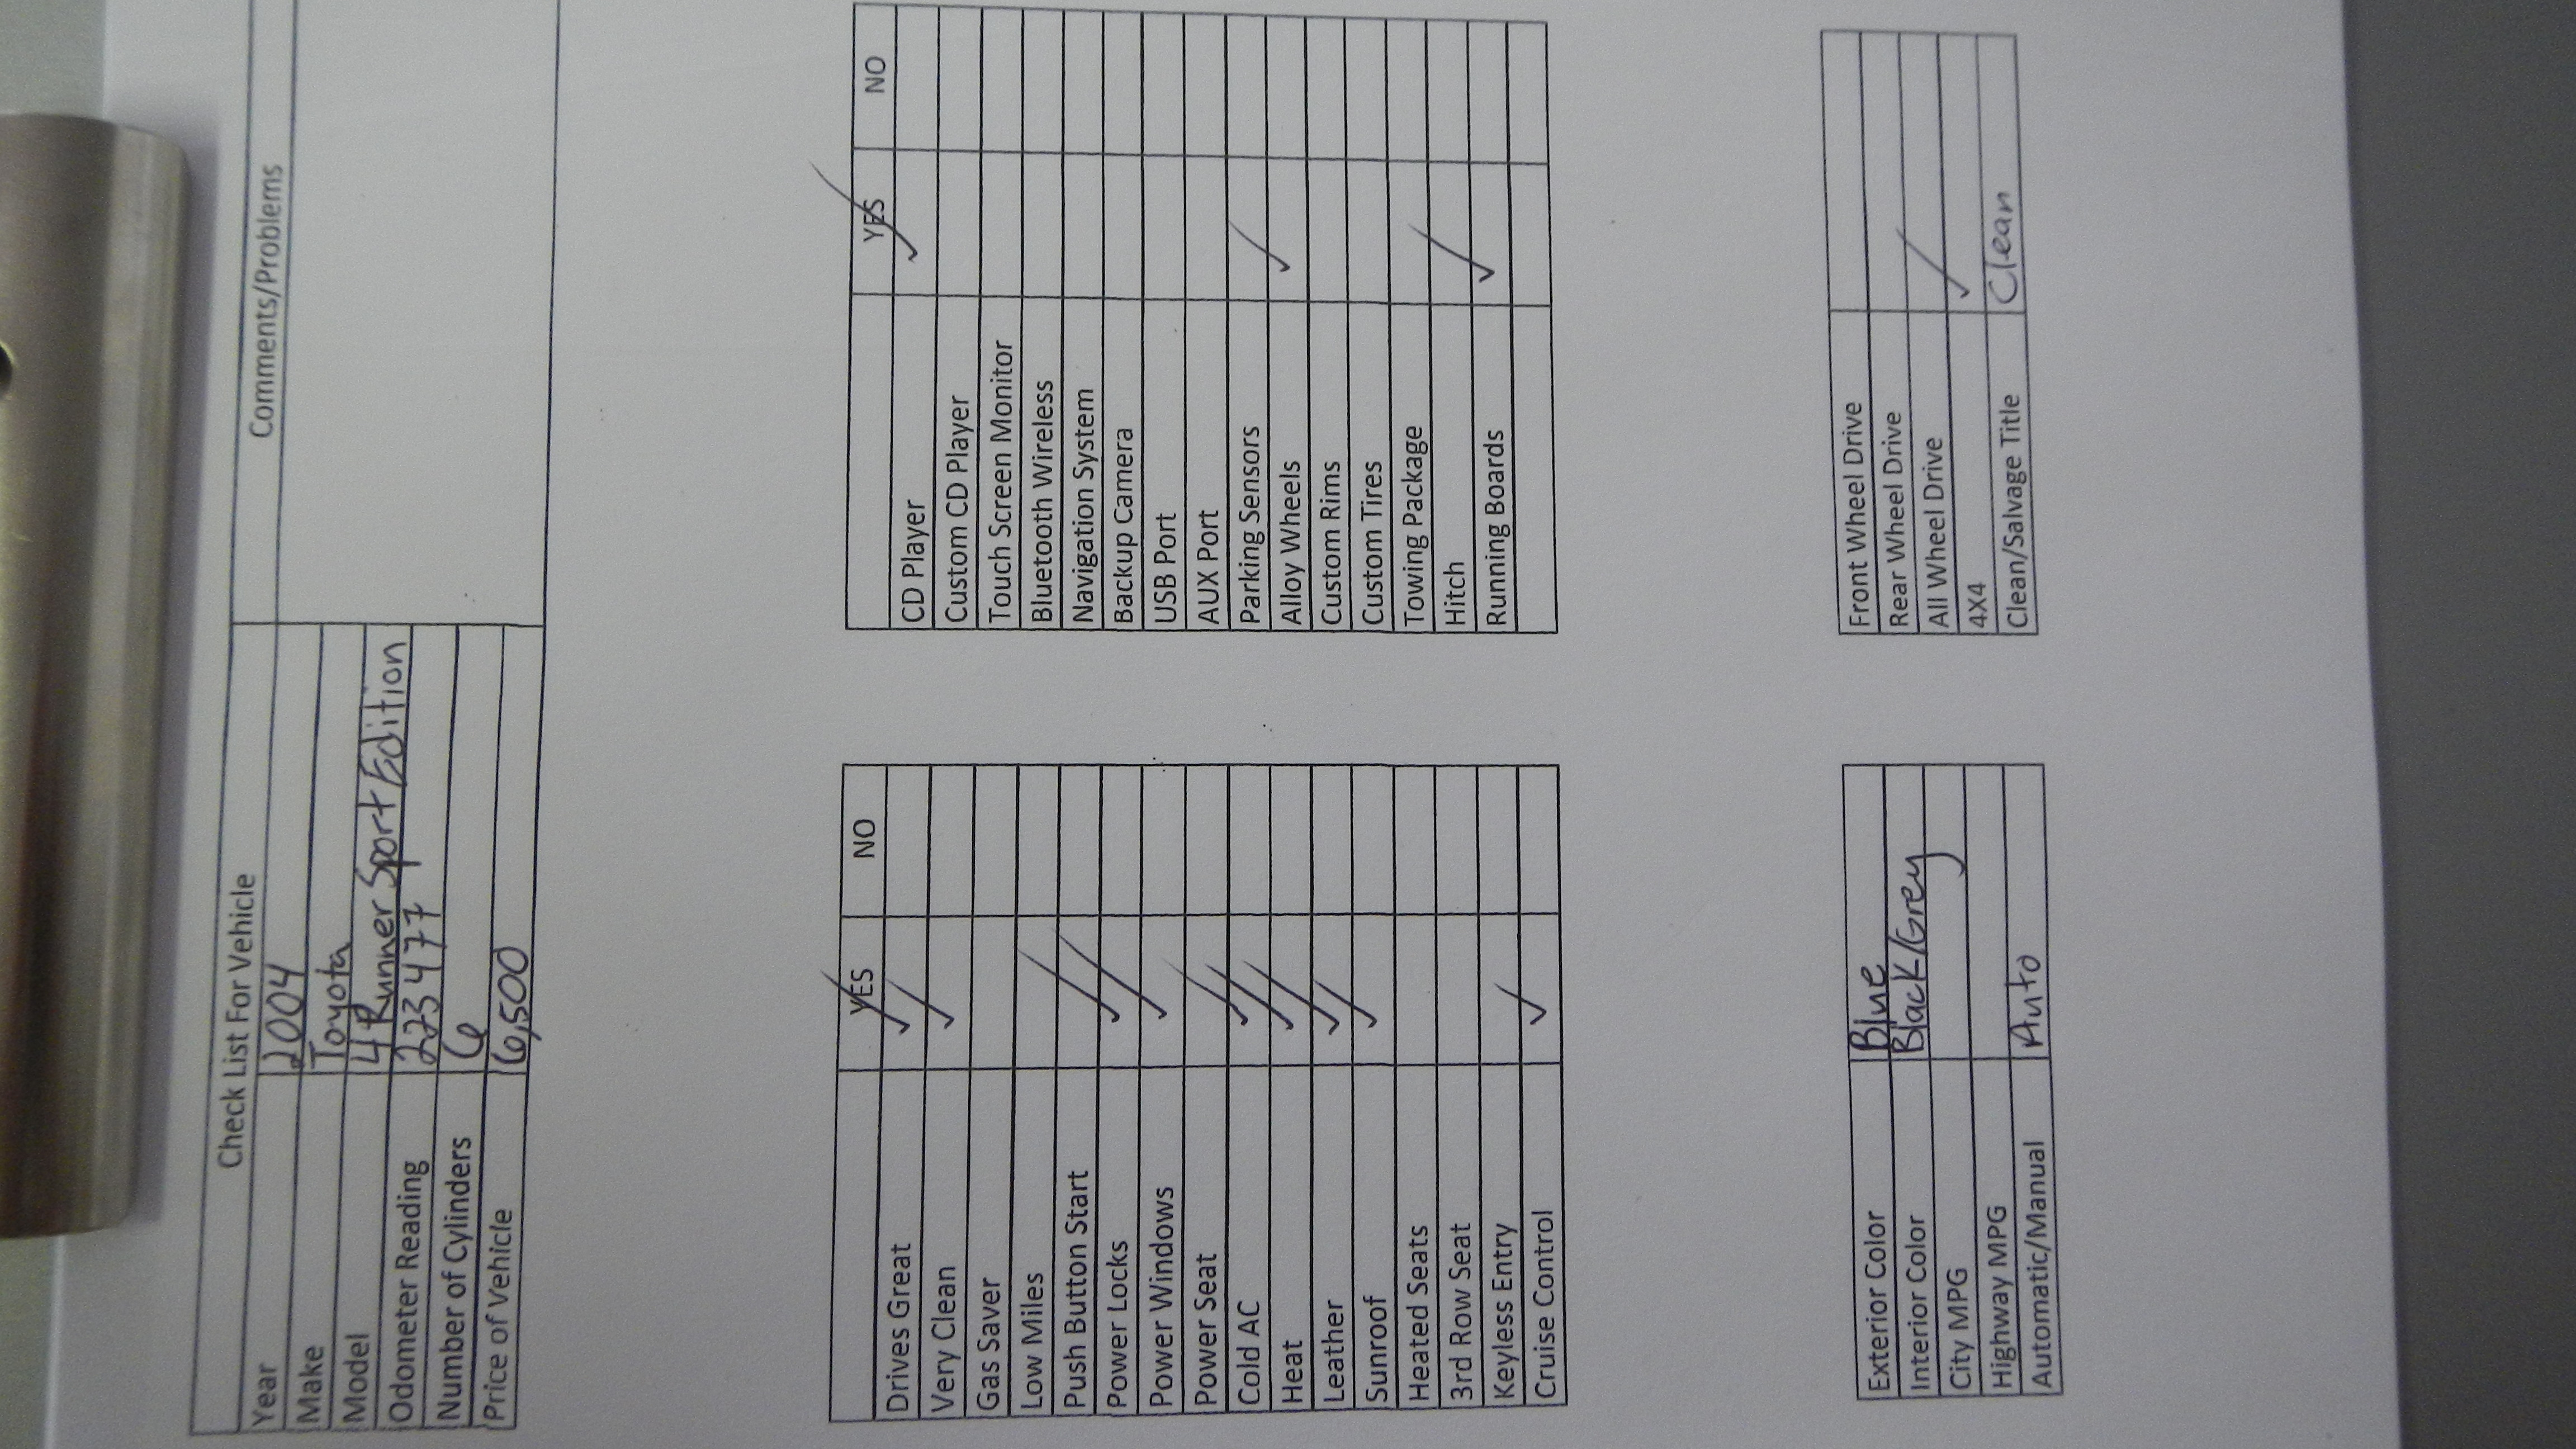 Check List For Vehicle
Comments/Problems
Year 2004
Make Toyota
Model 4 Runner Sport Edition
Odometer Reading 223477
Number of Cylinders 6
Price of Vehicle 6,500
YES NO
Drives Great ✓
Very Clean ✓
Gas Saver
Low Miles
Push Button Start
Power Locks ✓
Power Windows ✓
Power Seat
Cold AC ✓
Heat ✓
Leather ✓
Sunroof ✓
Heated Seats
3rd Row Seat
Keyless Entry
Cruise Control ✓
YES NO
CD Player ✓
Custom CD Player
Touch Screen Monitor
Bluetooth Wireless
Navigation System
Backup Camera
USB Port
AUX Port
Parking Sensors
Alloy Wheels ✓
Custom Rims
Custom Tires
Towing Package
Hitch
Running Boards ✓
Exterior Color Blue
Interior Color Black/Grey
City MPG
Highway MPG
Automatic/Manual Auto
Front Wheel Drive
Rear Wheel Drive
All Wheel Drive
4X4 ✓
Clean/Salvage Title Clean